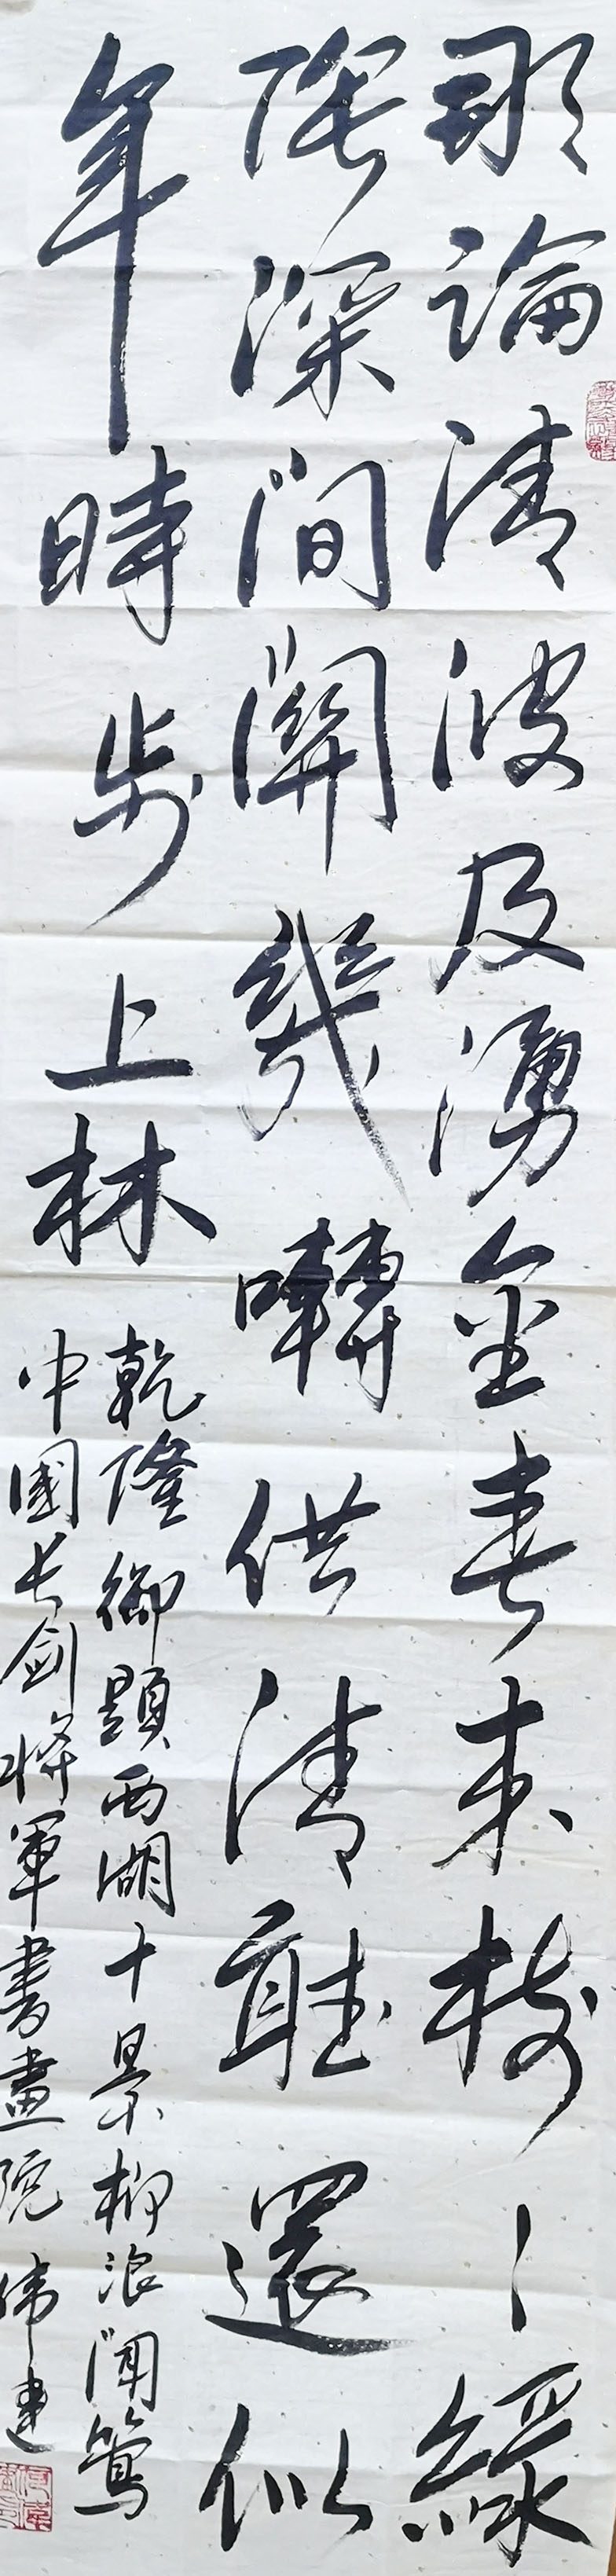 那論清波及湧金春来樹々緑
陰深間關幾囀供清聽還似
年時步上林
乾隆御題西湖十景柳浪聞鶯
中國长劍將軍書畫院偉建